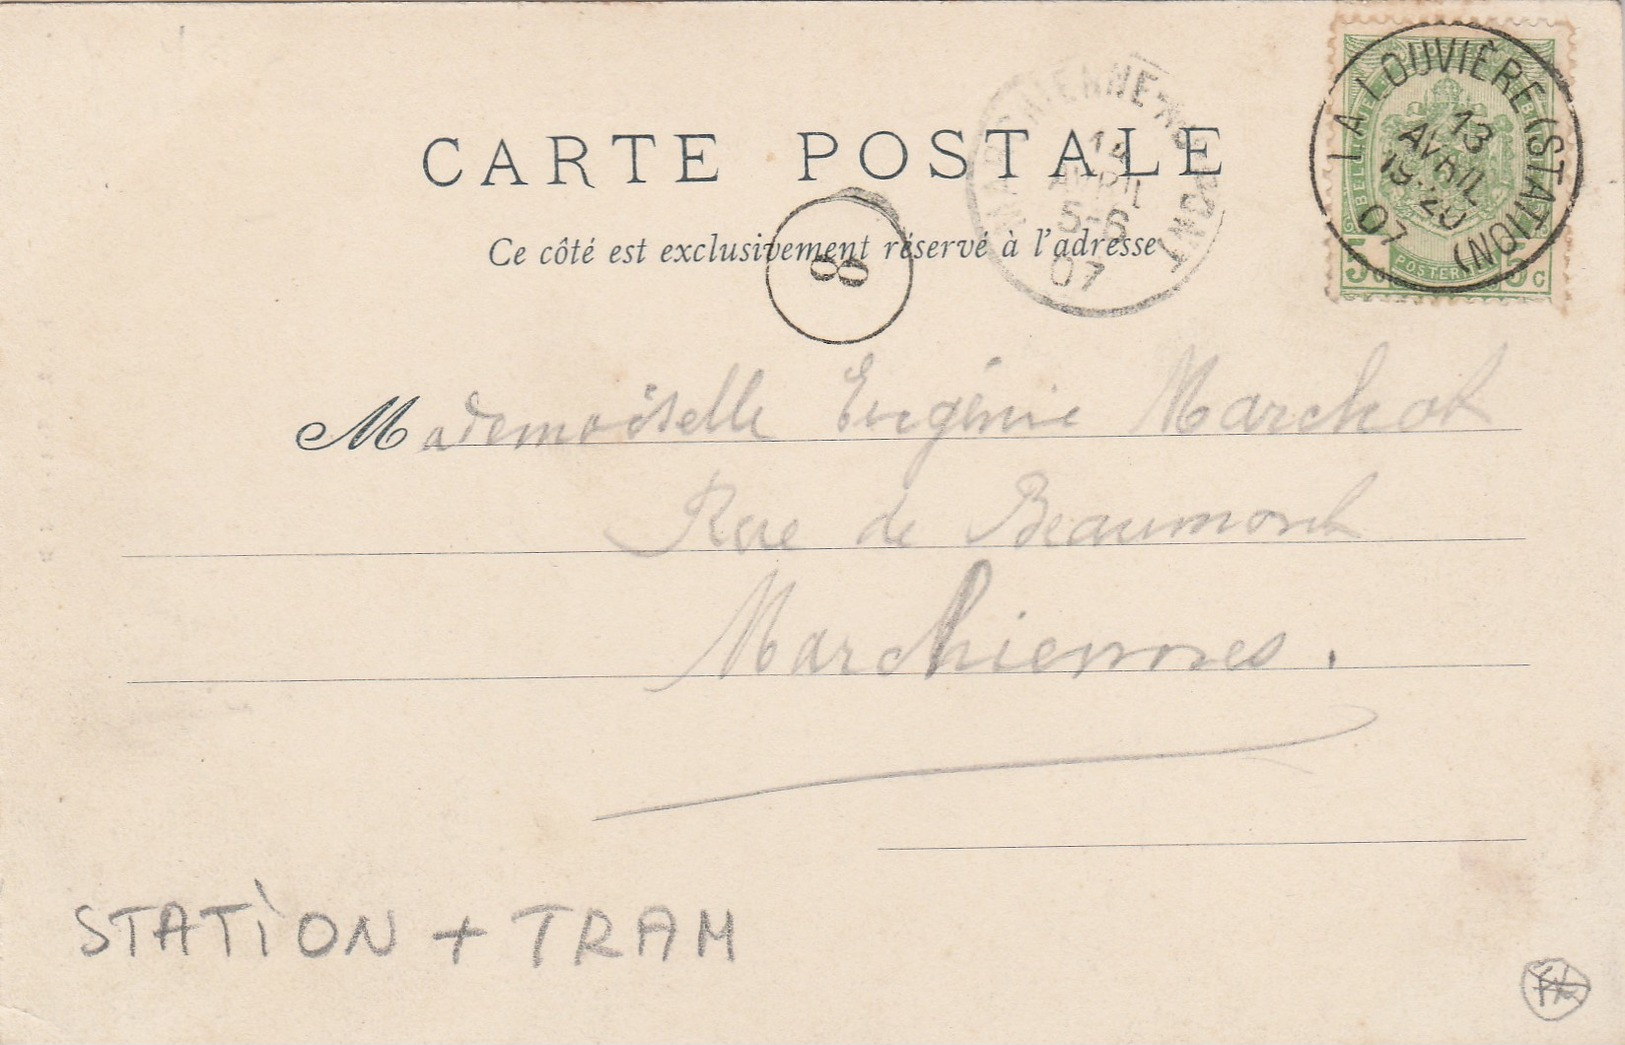 CARTE POSTALE
Ce côté est exclusivement réservé à l'adresse
8
MARCHIENNE-AU-PONT
14
AVRIL
5-6
07
LA LOUVIÈRE (STATION)
13
AVRIL
19-20
07
BELGIQUE POSTES
POSTERIJEN
5c 5c
Mademoiselle Eugénie Marchot
Rue de Beaumont
Marchiennes.
STATION + TRAM